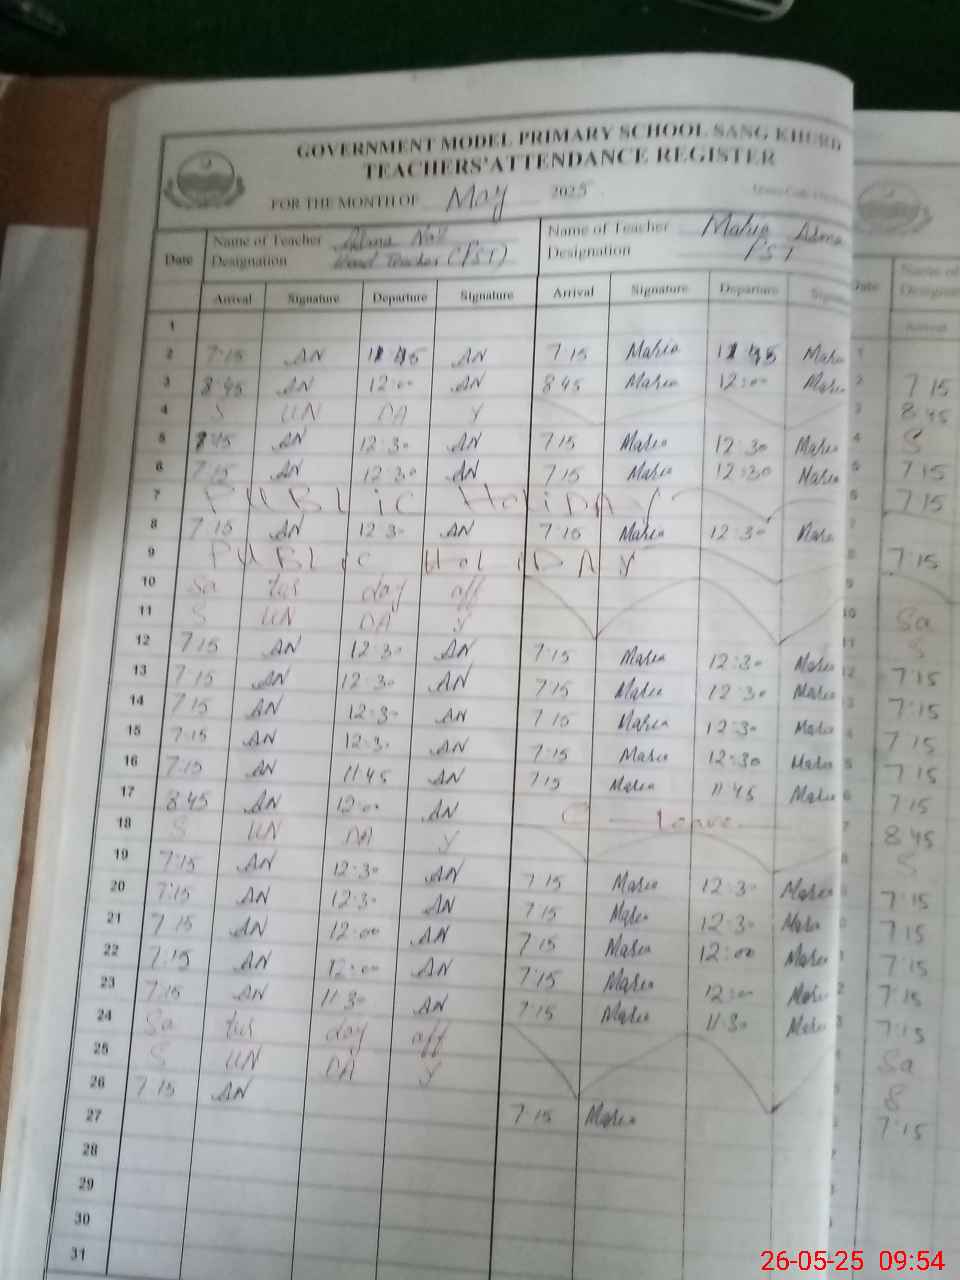 GOVERNMENT MODEL PRIMARY SCHOOL SANG KHURD
TEACHERS' ATTENDANCE REGISTER
FOR THE MONTH OF May 2025
Date Name of Teacher Name of Teacher Maria
Designation Head Teacher (PST) Designation PST
Arrival Signature Departure Signature Arrival Signature Departure
1
2 7:15 AN 11 45 AN 7:15 Maria 11 45 Maria
3 8:45 AN 12:00 AN 8 45 Maria 12:00 Maria 7 15
4 S UN DA Y 8 45
5 8:15 AN 12:30 AN 7 15 Maria 12:30 Maria S
6 7:15 AN 12:30 AN 7 15 Maria 12:30 Maria 7 15
7 PUBLiC HoLiDAY 7 15
8 7:15 AN 12 30 AN 7:15 Maria 12:30 Maria
9 PUBLiC HoLiDAY 7:15
10 Sa tur day off
11 S UN DA Y Sa
12 7:15 AN 12 30 AN 7:15 Maria 12:30 Maria S
13 7:15 AN 12:30 AN 7:15 Maria 12:30 Maria 7:15
14 7 15 AN 12:30 AN 7 15 Maria 12:30 Maria 7:15
15 7:15 AN 12:30 AN 7:15 Maria 12:30 Maria 7 15
16 7:15 AN 11 45 AN 7:15 Maria 11 45 Maria 7 15
17 8 45 AN 12:00 AN C leave 7:15
18 S UN DA Y 8 45
19 7:15 AN 12:30 AN 7 15 Maria 12:30 Maria S
20 7:15 AN 12:30 AN 7:15 Maria 12:30 Maria 7:15
21 7 15 AN 12:00 AN 7:15 Maria 12:00 Maria 7 15
22 7:15 AN 12:00 AN 7:15 Maria 12:00 Maria 7:15
23 7:15 AN 11 30 AN 7:15 Maria 11:30 Maria 7:15
24 Sa tur day off 7:15
25 S UN DA Y Sa
26 7 15 AN 7:15 Maria S
27 7:15
28
29
30
31
26-05-25 09:54